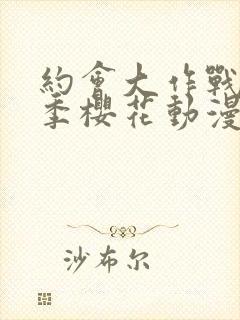 約會大作戰
季櫻花動漫
沙布尔